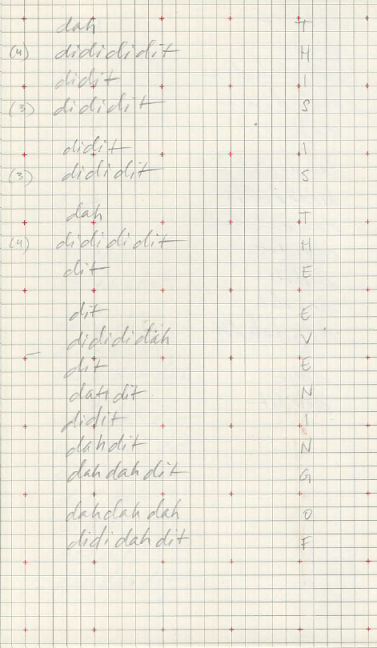 dah T
(4) dididididit H
didit I
(3) dididit S
didit I
(3) dididit S
dah T
(4) didididit H
dit E
dit E
didididah V
dit E
dahdit N
didit I
dahdit N
dahdahdit G
dahdahdah O
dididahdit F